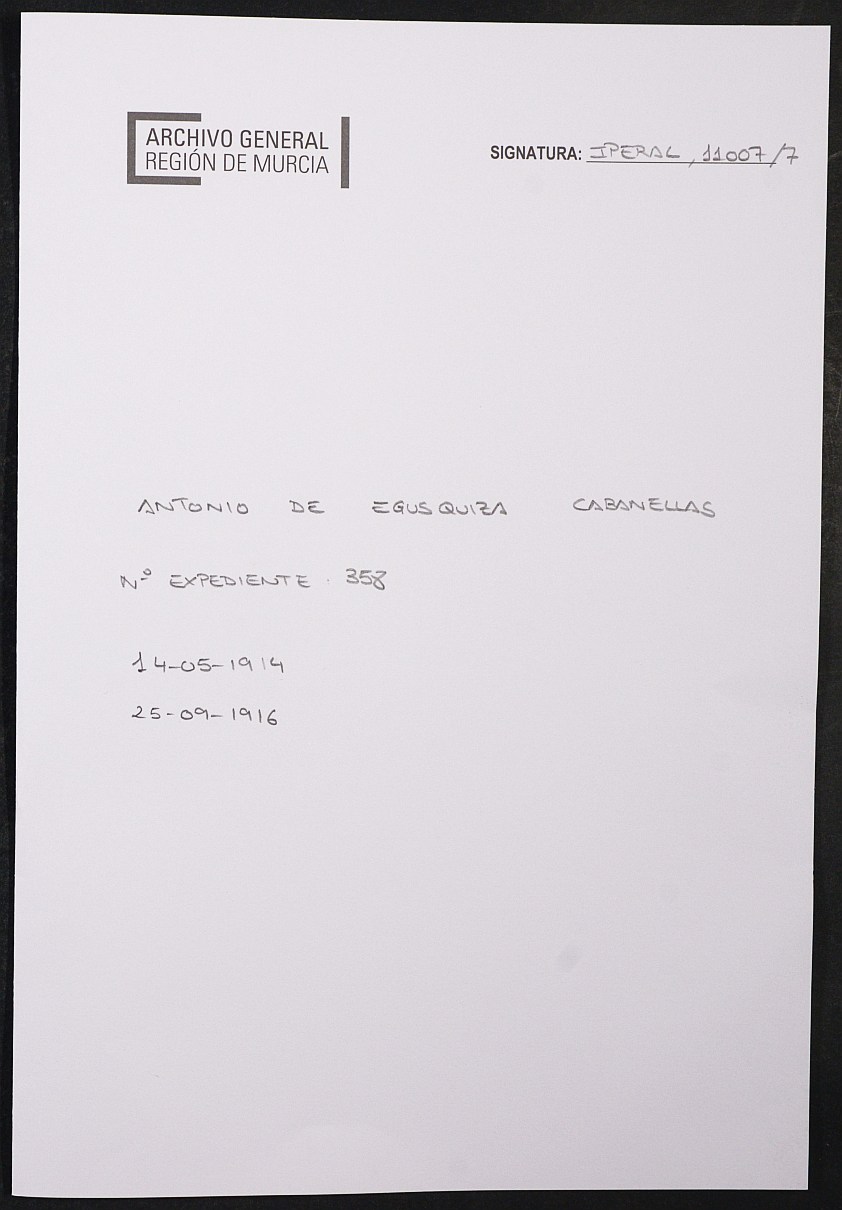 ARCHIVO GENERAL
REGIÓN DE MURCIA
SIGNATURA: IPERAL, 11007/7
ANTONIO DE EGUSQUIZA CABANELLAS
Nº EXPEDIENTE 358
14-05-1914
25-09-1916